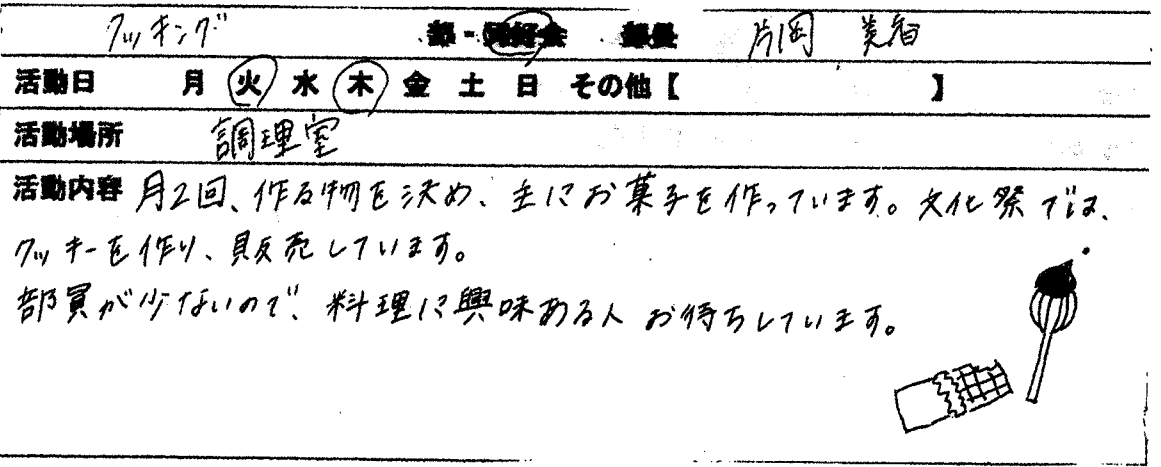 クッキング 部・同好会 部長 片岡 美香
活動日 月 火 水 木 金 土 日 その他【 】
活動場所 調理室
活動内容 月2回、作る物を決め、主にお菓子を作っています。文化祭では、
クッキーを作り、販売しています。
部員が少ないので、料理に興味ある人 お待ちしています。